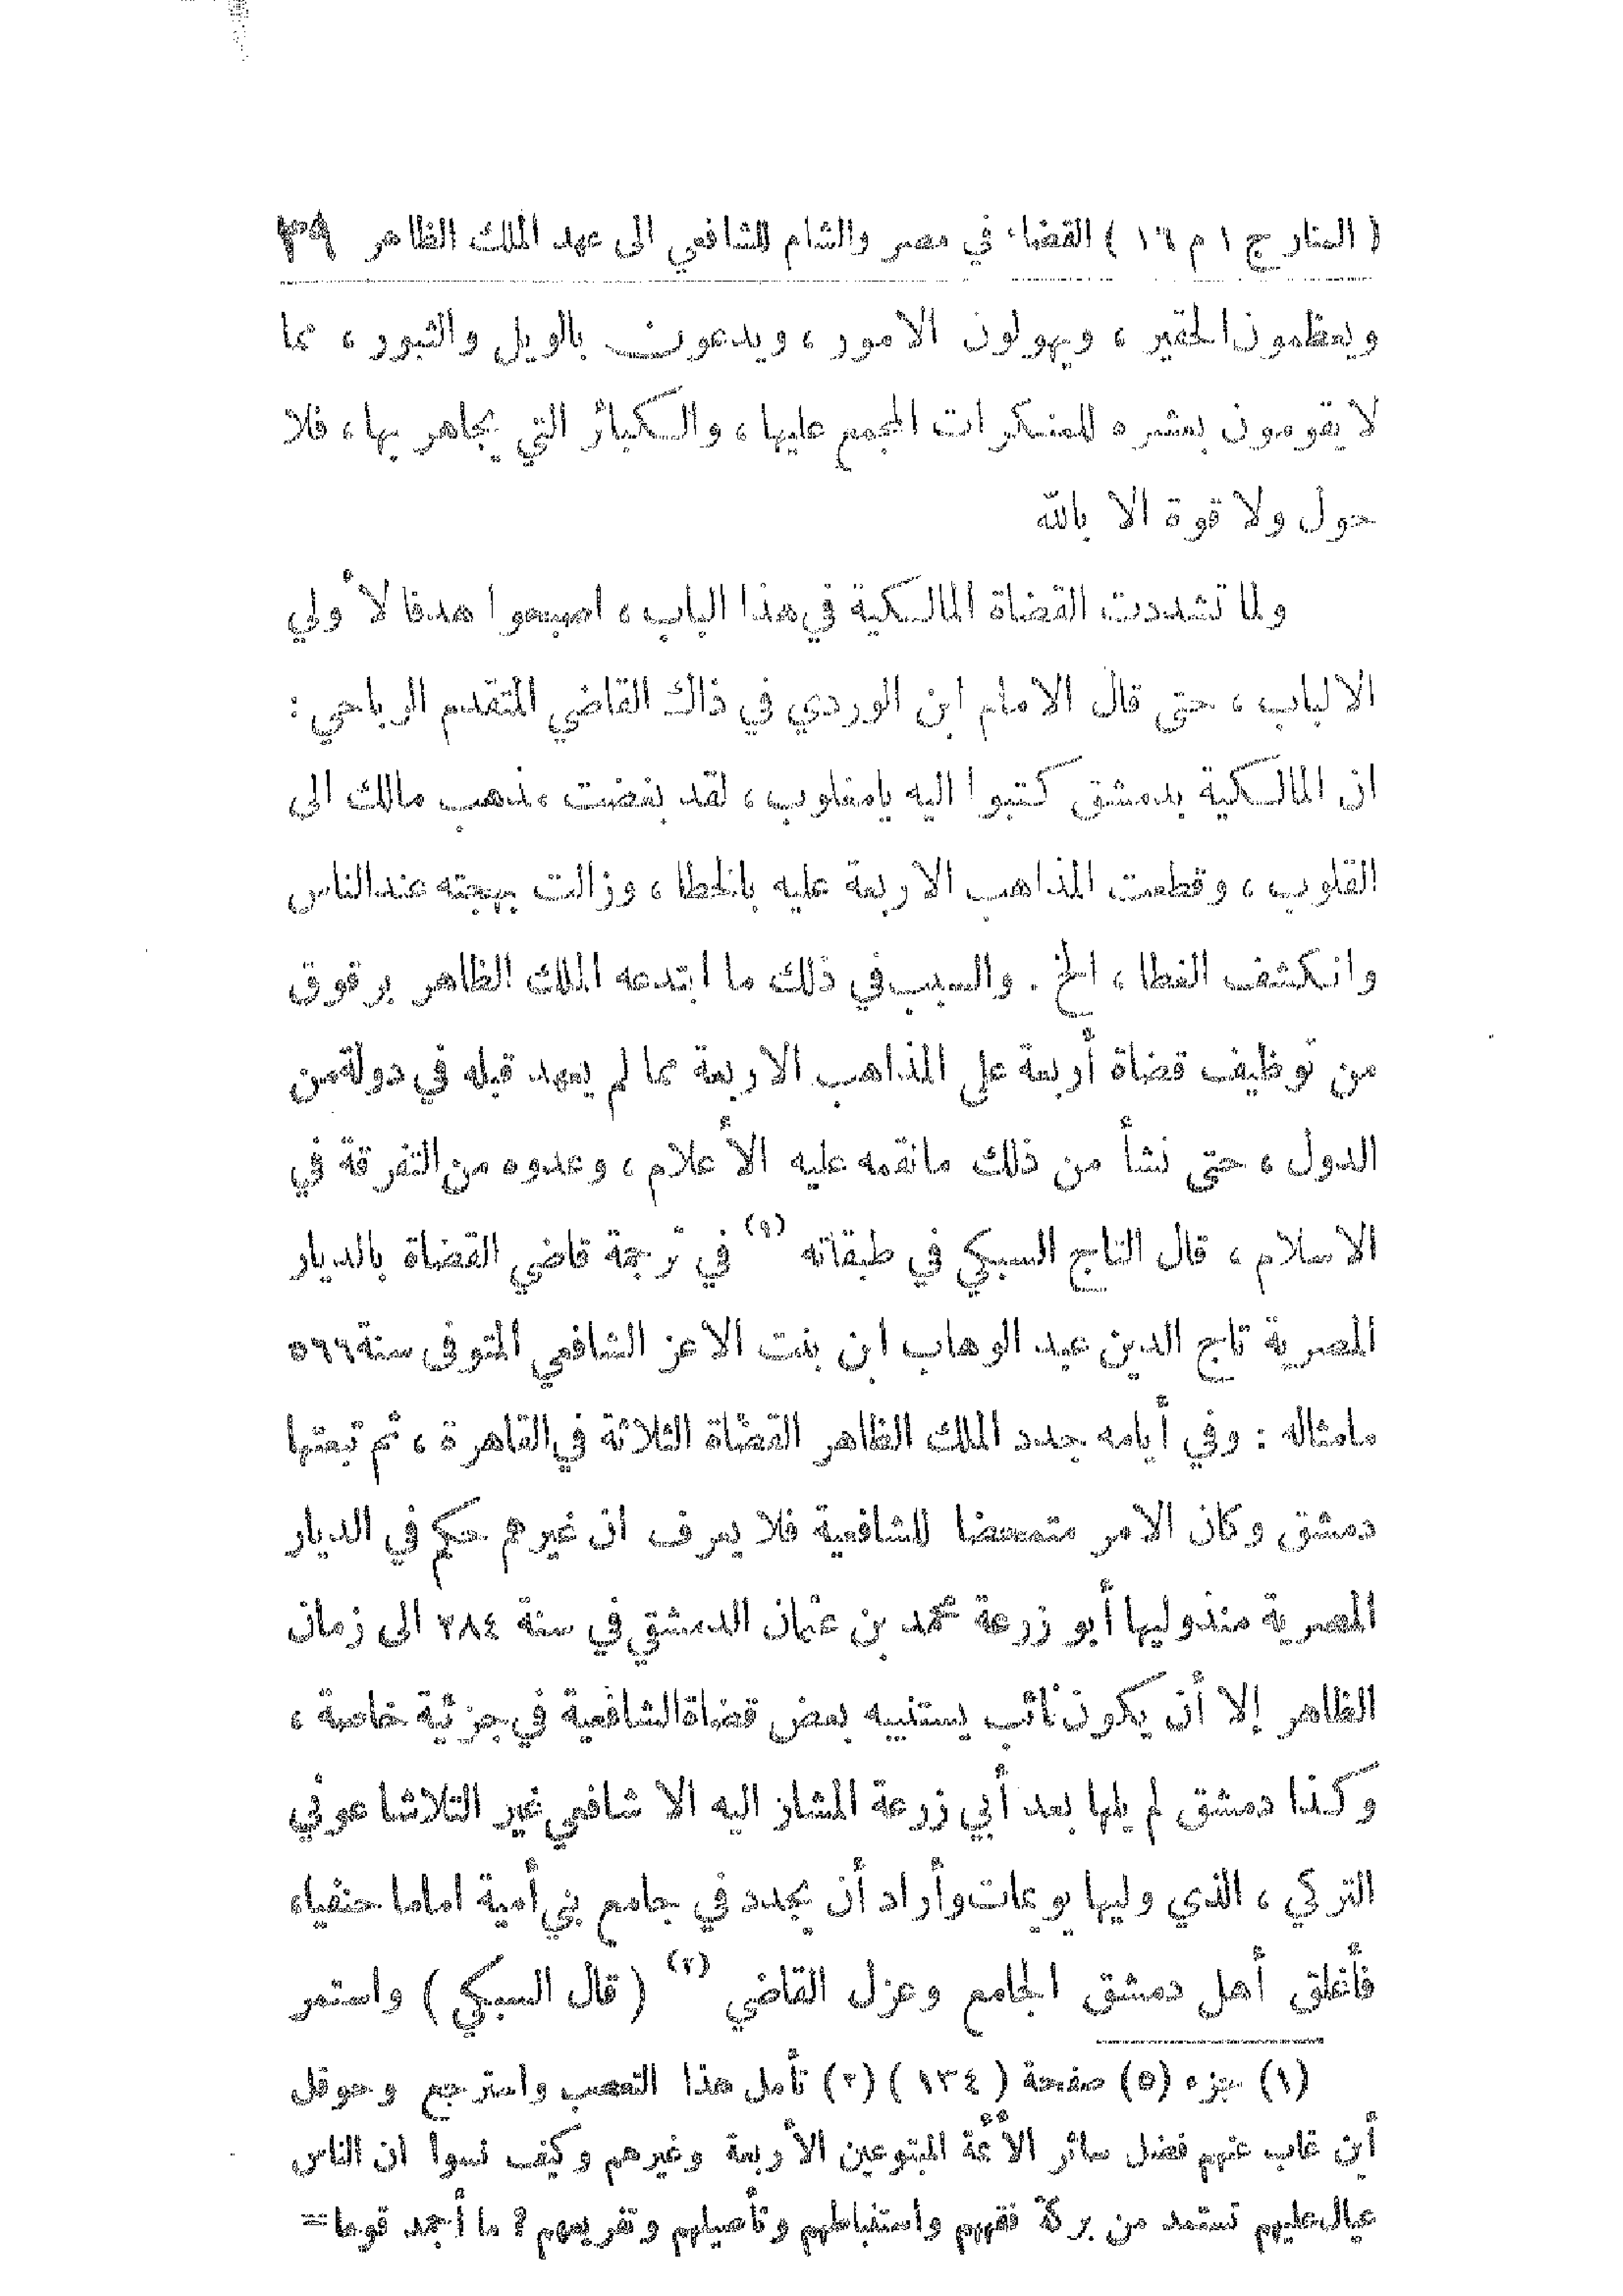 ( المنار ج ١ م ١٦ ) القضاء في مصر والشام للشافعي الى عهد الملك الظاهر ٣٩
ويعظمون الحقير ، ويهولون الامور ، ويدعون بالويل والثبور ، مما
لا يقومون بعشره للمنكرات المجمع عليها ، والكبائر التي يجاهر بها ، فلا
حول ولا قوة الا بالله
ولما تشددت القضاة المالكية في هذا الباب ، اصبحوا هدفا لأولي
الالباب ، حتى قال الامام ابن الوردي في ذاك القاضي المتقدم الرباحي :
ان المالكية بدمشق كتبوا اليه يامغلوب ، لقد بغضت مذهب مالك الى
القلوب ، وقطعت المذاهب الاربعة عليه بالخطا ، وزالت بهجته عند الناس
وانكشف الغطا ، الخ . والسبب في ذلك ما ابتدعه الملك الظاهر برقوق
من توظيف قضاة أربعة على المذاهب الاربعة مما لم يعهد قبله في دولة من
الدول ، حتى نشأ من ذلك مانقمه عليه الأعلام ، وعدوه من التفرقة في
الاسلام ، قال التاج السبكي في طبقاته (١) في ترجمة قاضي القضاة بالديار
المصرية تاج الدين عبد الوهاب ابن بنت الاعز الشافعي المتوفى سنة ٥٦٦
مامثاله : وفي أيامه جدد الملك الظاهر القضاة الثلاثة في القاهرة ، ثم تبعتها
دمشق وكان الامر متمحضا للشافعية فلا يعرف ان غيرهم حكم في الديار
المصرية منذ وليها أبو زرعة محمد بن عثمان الدمشقي في سنة ٢٨٤ الى زمان
الظاهر إلا أن يكون نائب يستنيبه بعض قضاة الشافعية في جزئية خاصة ،
وكذا دمشق لم يلها بعد أبي زرعة المشار اليه الا شافعي غير التلاشاعوني
التركي ، الذي وليها يويمات وأراد أن يجدد في جامع بني أمية اماما حنفيا ،
فأغلق أهل دمشق الجامع وعزل القاضي (٢) ( قال السبكي ) واستمر
(١) جزء (٥) صفحة ( ١٣٤ ) (٢) تأمل هذا التعصب واسترجع وحوقل
أين غاب عنهم فضل سائر الأئمة المتبوعين الأربعة وغيرهم وكيف نسوا ان الناس
عيال عليهم تستمد من بركة فقههم واستنباطهم وتأصيلهم وتفريعهم ؟ ما أجمد قوما =